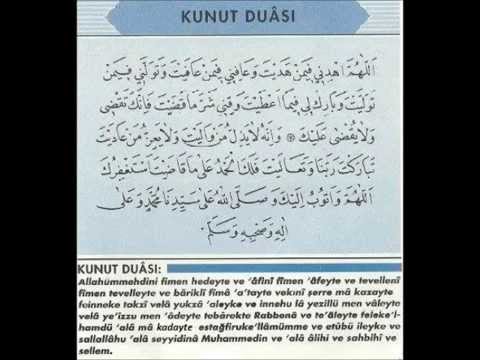 KUNUT DUÂSI
اَللّٰهُمَّ اهْدِنِي فِيمَنْ هَدَيْتَ وَعَافِنِي فِيمَنْ عَافَيْتَ وَتَوَلَّنِي فِيمَنْ
تَوَلَّيْتَ وَبَارِكْ لِي فِيمَا اَعْطَيْتَ وَقِنِي شَرَّ مَا قَضَيْتَ فَاِنَّكَ تَقْضِي
وَلَا يُقْضٰى عَلَيْكَ وَاِنَّهُ لَا يَذِلُّ مَنْ وَالَيْتَ وَلَا يَعِزُّ مَنْ عَادَيْتَ
تَبَارَكْتَ رَبَّنَا وَتَعَالَيْتَ فَلَكَ الْحَمْدُ عَلٰى مَا قَضَيْتَ اَسْتَغْفِرُكَ
اَللّٰهُمَّ وَاَتُوبُ اِلَيْكَ وَصَلَّى اللّٰهُ عَلٰى سَيِّدِنَا مُحَمَّدٍ وَعَلٰى
اٰلِهِ وَصَحْبِهِ وَسَلَّمَ
KUNUT DUÂSI:
Allahümmehdini fimen hedeyte ve 'âfinî fîmen 'âfeyte ve tevellenî
fîmen tevelleyte ve bârikli fîmâ a'tayte vekınî şerre mâ kazayte
feinneke takzî velâ yukzâ 'aleyke ve innehu lâ yezillü men vâleyte
velâ ye'izzu men 'âdeyte tebârekte Rabbenâ ve te'âleyte feleke'l-
hamdü 'alâ mâ kadayte estağfiruke'llâmümme ve etûbü ileyke ve
sallallâhu 'alâ seyyidinâ Muhammedin ve 'alâ âlihî ve sahbihî ve
sellem.